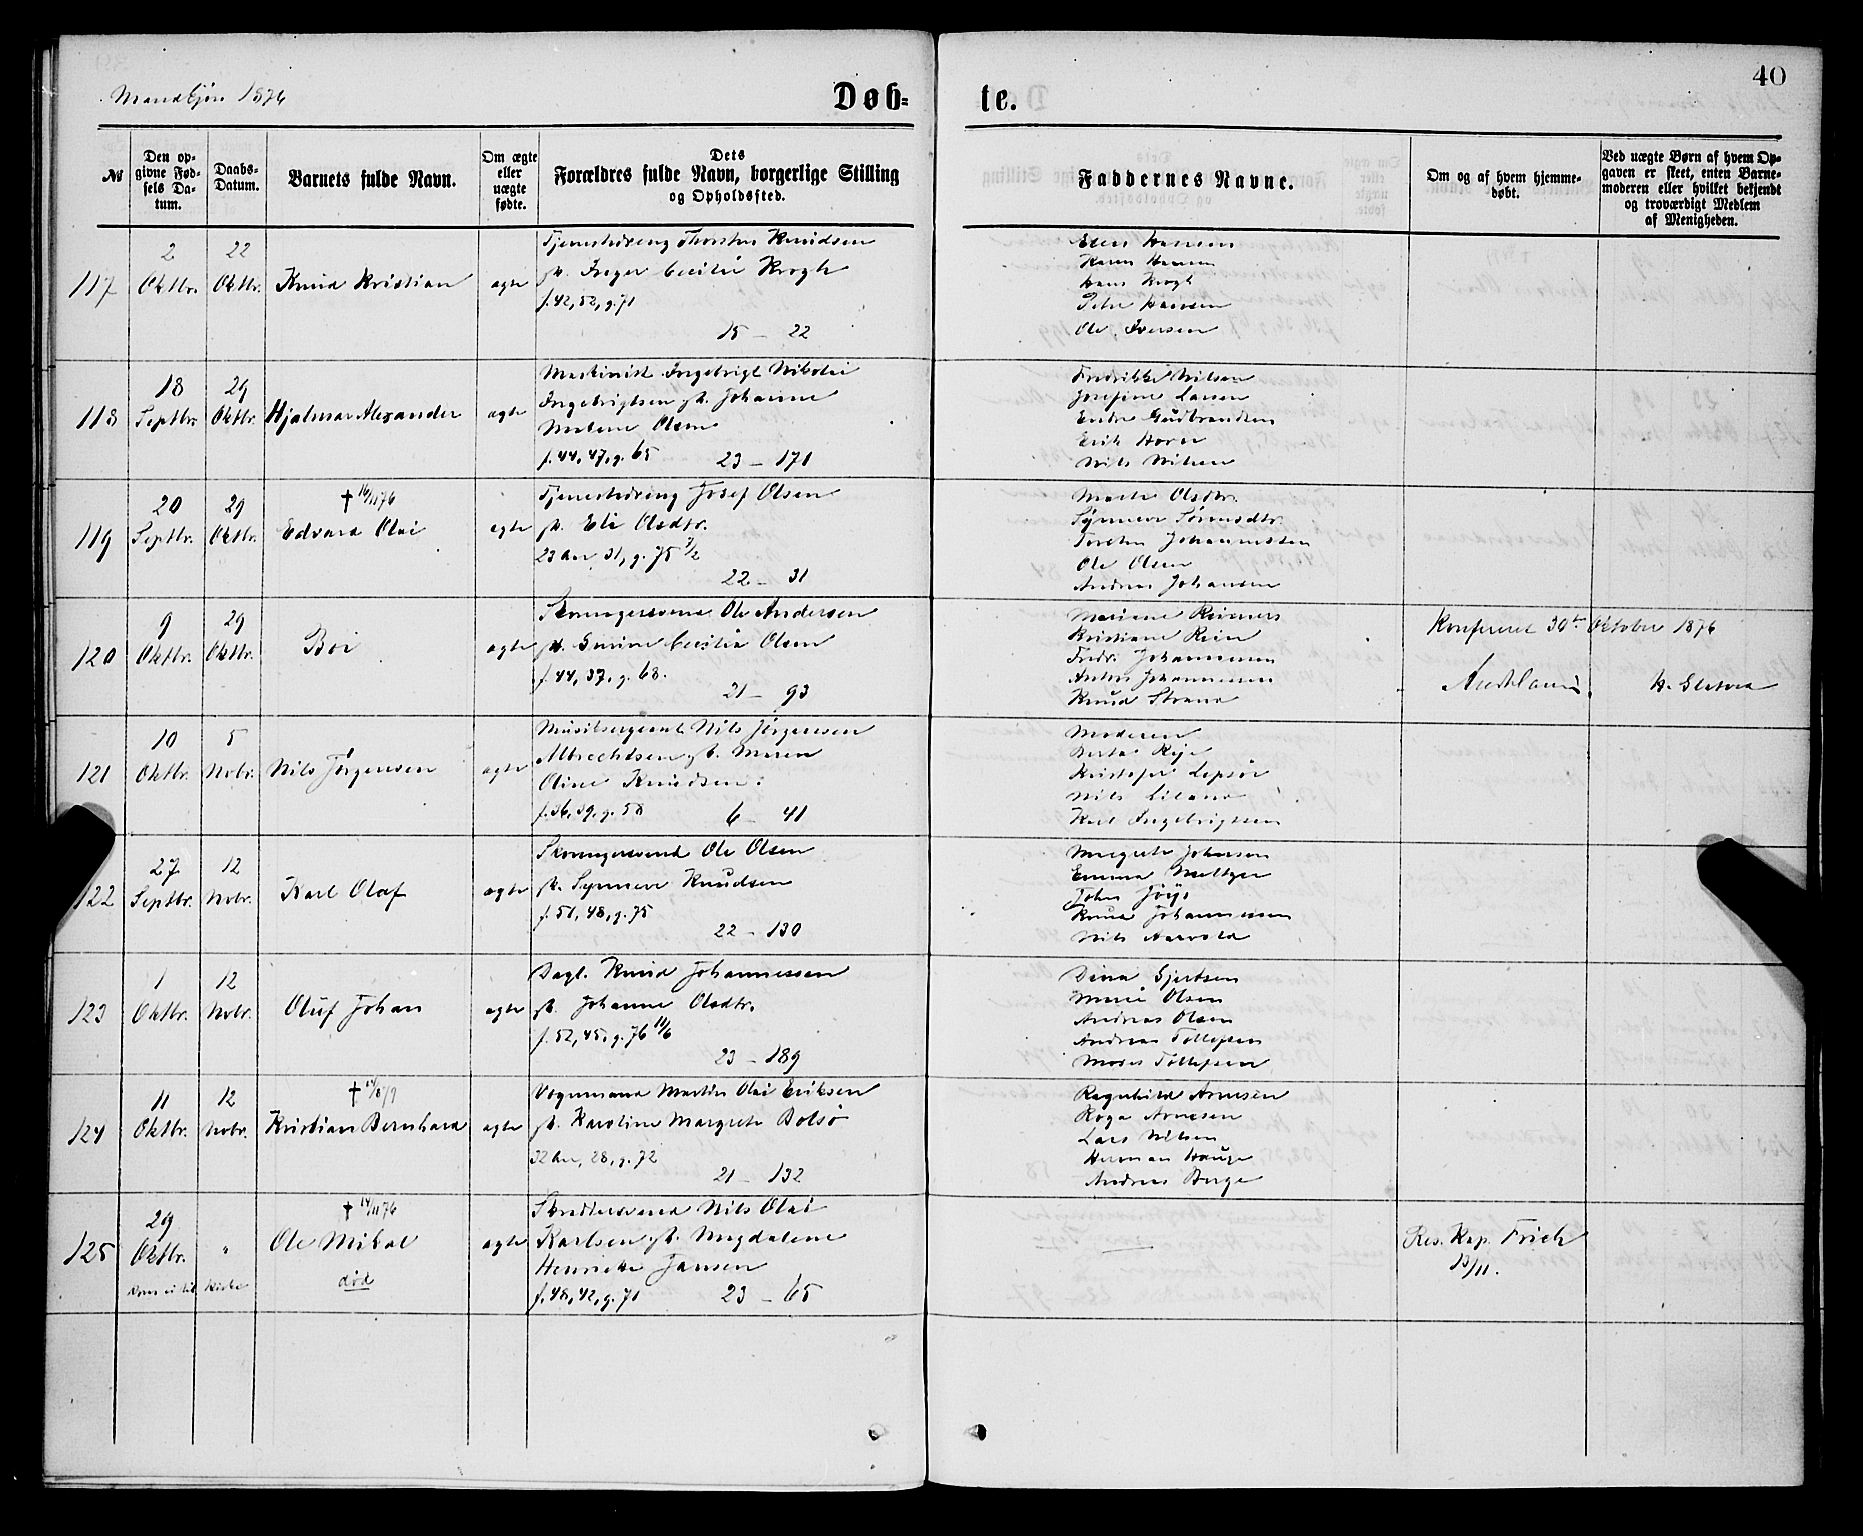 Mandkjøn 1876
Døb-
te.
40
№
Den op-
givne Fød-
sels Da-
tum.
Daabs-
Datum.
Barnets fulde Navn.
Om ægte
eller
uægte
fødte.
Dets
Forældres fulde Navn, borgerlige Stilling
og Opholdssted.
Faddernes Navne.
Om og af hvem hjemme-
døbt.
Ved uægte Børn af hvem Op-
gaven er skeet, enten Barne-
moderen eller hvilket bekjendt
og troværdigt Medlem
af Menigheden.
117
2
Oktbr.
22
Oktbr.
Knud Kristian
ægte
Tjenestdreng Thorsten Knudsen
Inger Cecilie Krogh
f. 42, 52, g. 71
15 - 22
Hansen
Karen Hansen
Hans Krogh
Peter Hansen
Ole Iversen
118
18
Septbr.
29
Oktbr.
Hjalmar Alexander
ægte
Maskinist Ingebrigt Nikolai
Ingebrigtsen Johanne
Olsen
f. 44, 47, g. 65
23 - 171
Fredrikke Nilsen
Josefine Larsen
Endre Gudbrandsen
Erik
Nils Nilsen
119
20
Septbr.
29
Oktbr.
† 16/11 76
Edvard Olai
ægte
Tjenestdreng Josef Olsen
Eli Olsdtr.
23 Aar, 31, g. 75
22 - 31
Olsdtr.
Synneve
Torsten Johannessen
Ole Olsen
Andreas Johansen
120
9
Oktbr.
29
Oktbr.
Boi
ægte
Skomagersvend Ole Andersen
Cecilia Olsen
f. 44, 37, g. 68.
21 - 93
Mariane Reimers
Kristiane Rein
Fredr. Johannessen
Anton Johannessen
Knud Strand
Konfereret 30te Oktober 1876
121
10
Oktbr.
5
Novbr.
Nils Jörgensen
ægte
Musiksergeant Nils Jörgensen
Albrechtsen Maren
Oline Knudsen
f. 36, 39, g. 58
6 - 41
Moderen
Berta
Kristofer Lepsöe
Nils
Karl Ingebrigtsen
122
27
Septbr.
12
Novbr.
Karl Olaf
ægte
Skomagersvend Ole Olsen
Synneve Knudsen
f. 51, 48, g. 75
22 - 130
Margrete Johnson
Emma Meltzer
John
Knud Johannessen
Nils Aarvold
123
1
Oktbr.
12
Novbr.
Oluf Johan
ægte
Dagl. Knud Johannessen
Johanne Olsdtr.
f. 52, 45, g. 76
23 - 189
Dina Gjertsen
Marie Olsen
Andreas Olsen
Andreas Tollefsen
Moses Tollefsen
124
11
Oktbr.
12
Novbr.
Kristian Bernhard
ægte
Vognmand Martin Olai Eriksen
Karoline Margrete Bolsö
32 Aar, 28, g. 72
21 - 132
Ragnhild Arnesen
Arnesen
Lars Nilsen
Herman Hauge
Andreas Berge
125
29
Oktbr.
"
kom ei til Kirke
† 14/11 76
Ole Mikal
død
ægte
Skreddersvend Nils Olai
Karlsen Magdalene
Henriette Jansen
f. 48, 42, g. 71
23 - 65
Res. Kap. Frich
13/11.